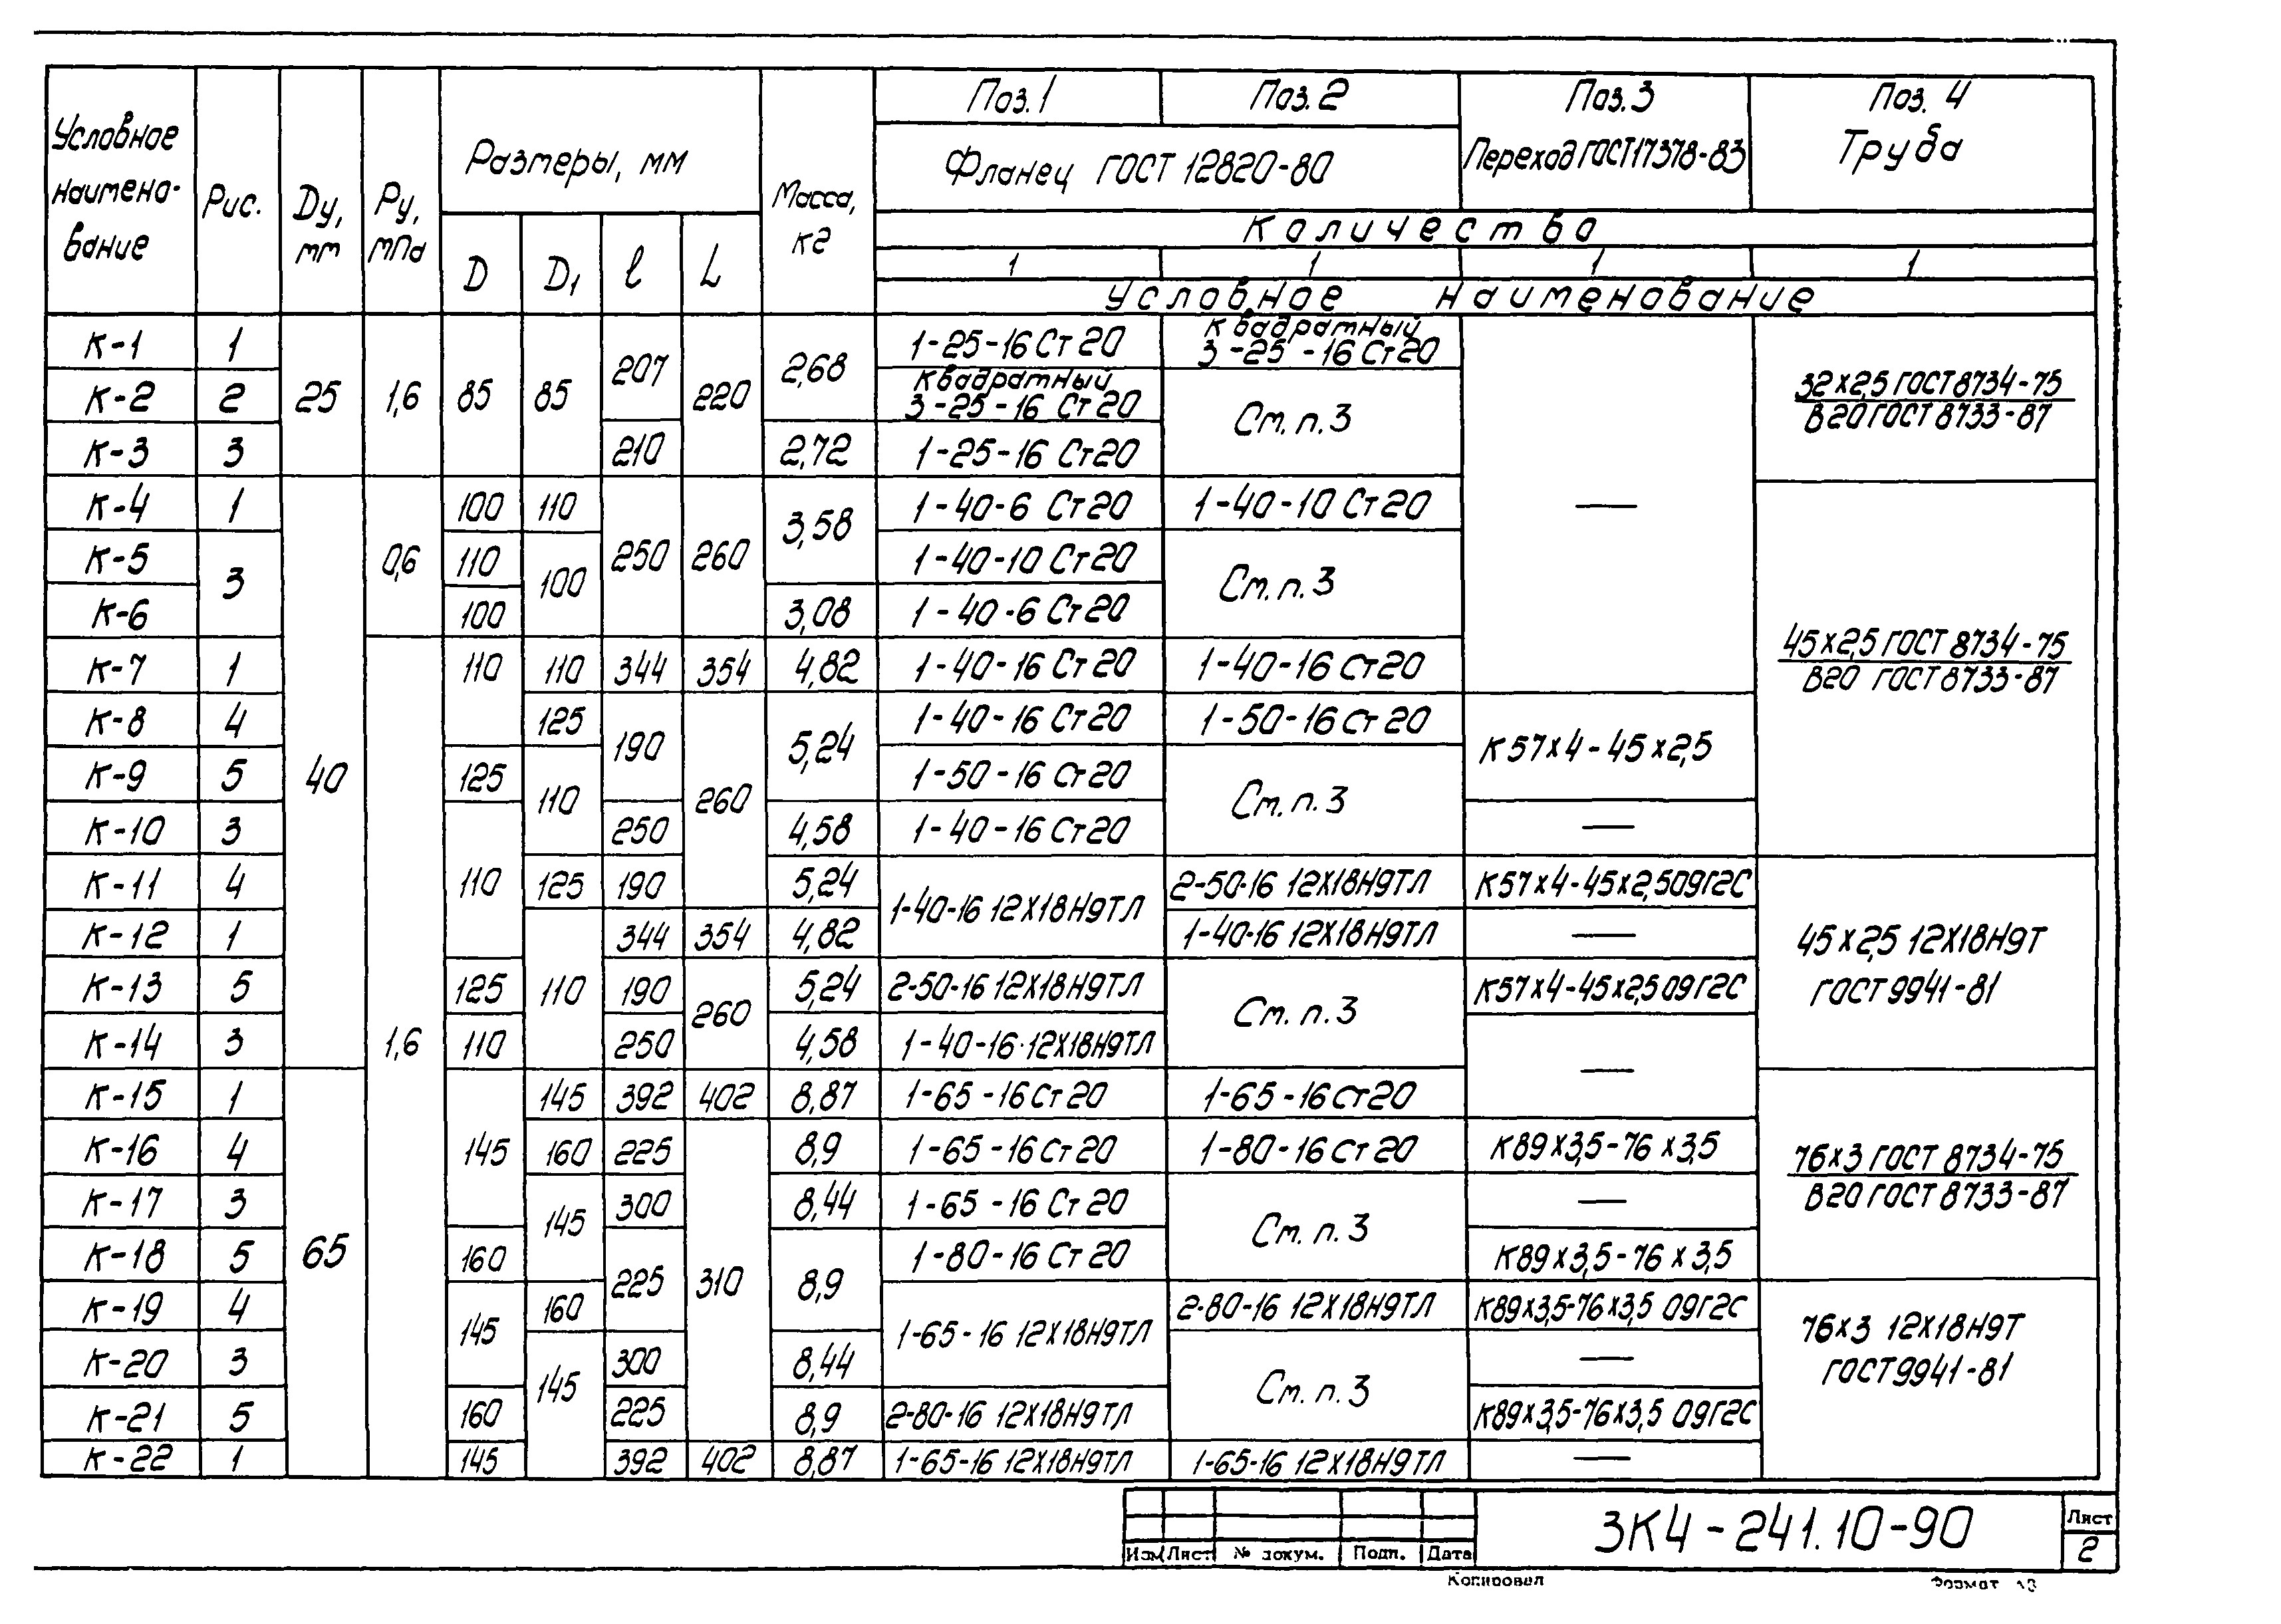 Условное наимено-вание Рис. Dу, мм Pу, мПа Размеры, мм Масса, кг Поз.1 Поз.2 Поз.3 Поз. 4
Фланец ГОСТ 12820-80 Переход ГОСТ17378-83 Труба
Количество
D D1 l L 1 1 1 1
Условное наименование
К-1 1 25 1,6 85 85 207 220 2,68 1-25-16 Ст 20 квадратный 3-25-16 Ст20 — 32х2,5 ГОСТ8734-75 В20 ГОСТ 8733-87
К-2 2 квадратный 3-25-16 Ст 20 См. п. 3
К-3 3 210 2,72 1-25-16 Ст20
К-4 1 40 0,6 100 110 250 260 3,58 1-40-6 Ст20 1-40-10 Ст20 45х2,5 ГОСТ 8734-75 В20 ГОСТ 8733-87
К-5 3 110 100 1-40-10 Ст20 См. п. 3
К-6 100 3,08 1-40-6 Ст20
К-7 1 1,6 110 110 344 354 4,82 1-40-16 Ст20 1-40-16 Ст20
К-8 4 125 190 260 5,24 1-40-16 Ст20 1-50-16 Ст 20 К57х4-45х2,5
К-9 5 125 110 1-50-16 Ст20 См. п. 3
К-10 3 110 250 4,58 1-40-16 Ст20 —
К-11 4 125 190 5,24 1-40-16 12Х18Н9ТЛ 2-50-16 12Х18Н9ТЛ К57х4-45х2,509Г2С 45х2,5 12Х18Н9Т ГОСТ 9941-81
К-12 1 110 344 354 4,82 1-40-16 12Х18Н9ТЛ —
К-13 5 125 190 260 5,24 2-50-16 12Х18Н9ТЛ См. п. 3 К57х4-45х2,5 09Г2С
К-14 3 110 250 4,58 1-40-16·12Х18Н9ТЛ —
К-15 1 65 145 145 392 402 8,87 1-65-16 Ст 20 1-65-16 Ст20 76х3 ГОСТ 8734-75 В20 ГОСТ 8733-87
К-16 4 160 225 310 8,9 1-65-16 Ст 20 1-80-16 Ст 20 К89х3,5-76х3,5
К-17 3 145 300 8,44 1-65-16 Ст 20 См. п. 3 —
К-18 5 160 225 8,9 1-80-16 Ст 20 К89х3,5-76х3,5
К-19 4 145 160 1-65-16 12Х18Н9ТЛ 2-80-16 12Х18Н9ТЛ К89х3,5-76х3,5 09Г2С 76х3 12Х18Н9Т ГОСТ 9941-81
К-20 3 145 300 8,44 См. п. 3 —
К-21 5 160 225 8,9 2-80-16 12Х18Н9ТЛ К89х3,5-76х3,5 09Г2С
К-22 1 145 392 402 8,87 1-65-16 12Х18Н9ТЛ 1-65-16 12Х18Н9ТЛ —
ЗК4-241.10-90 Лист
2
Изм Лист № докум. Подп. Дата
Копировал Формат А3